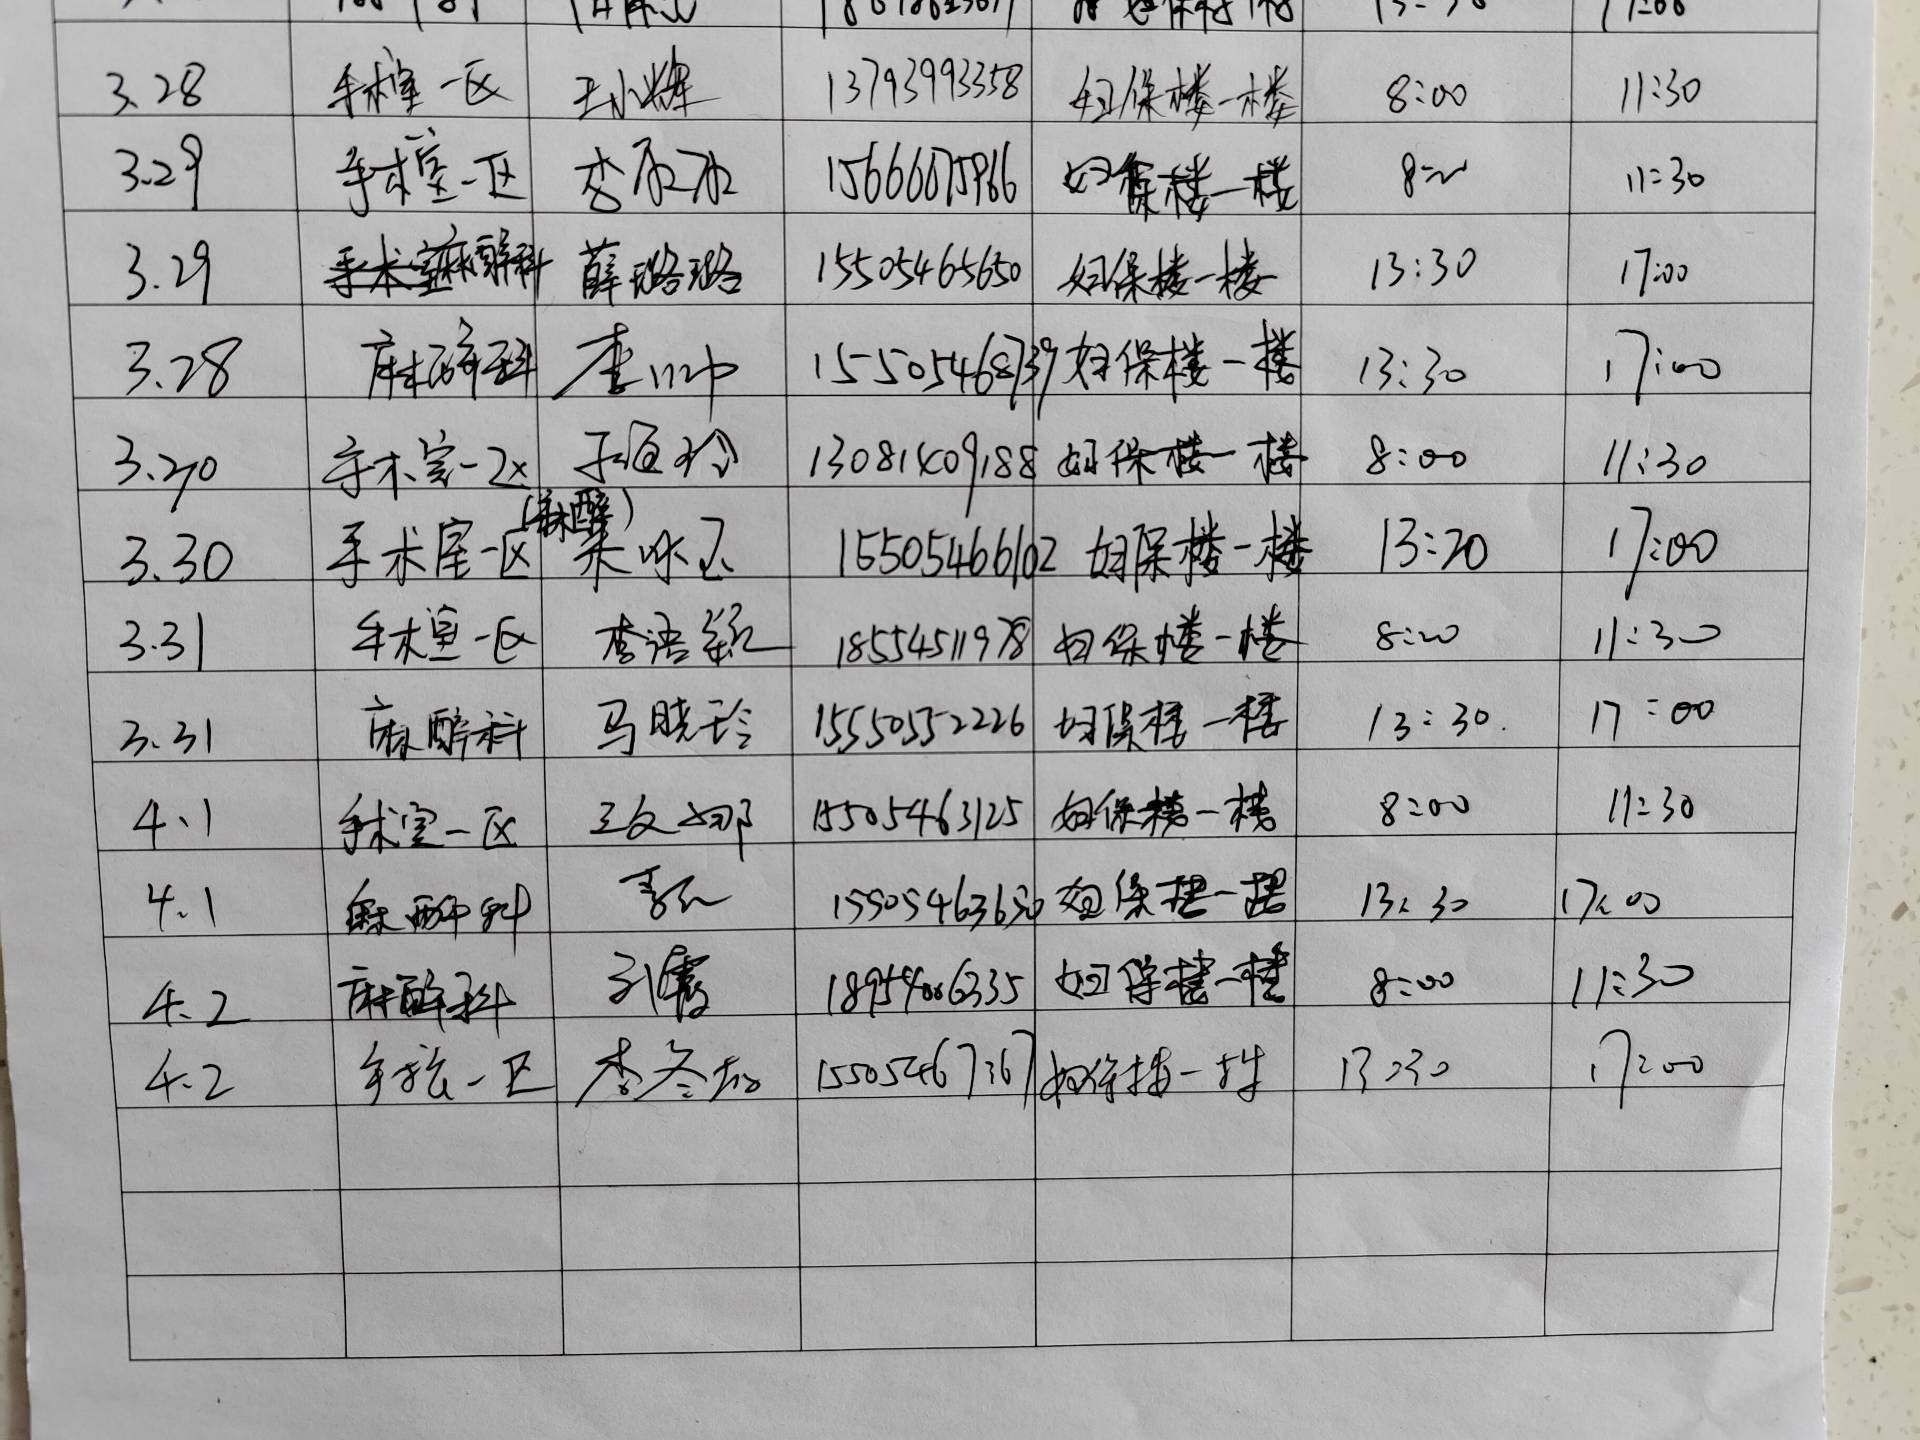 3.28 手术室一区 王小辉 13793993358 妇保楼一楼 8:00 11:30
3.29 手术室一区 李 15666675966 妇保楼一楼 8:00 11:30
3.29 麻醉科 薛璐璐 15505465650 妇保楼一楼 13:30 17:00
3.28 麻醉科 李 15505468739 妇保楼一楼 13:30 17:00
手术室一区 13081409188 妇保楼一楼 8:00 11:30
(麻醉)
3.30 手术室一区 15505466102 妇保楼一楼 13:20 17:00
3.31 手术室一区 李语 18554511978 妇保楼一楼 8:20 11:30
3.31 麻醉科 马晓玲 15550552226 妇保楼一楼 13:30. 17:00
4.1 手术室一区 王文娜 15505463125 妇保楼一楼 8:00 11:30
4.1 麻醉科 15505463650 妇保楼一楼 13:30 17:00
4.2 麻醉科 刘霞 18954006335 妇保楼一楼 8:00 11:30
4.2 手术室一区 李冬 15505467367 妇保楼一楼 13:30 17:00